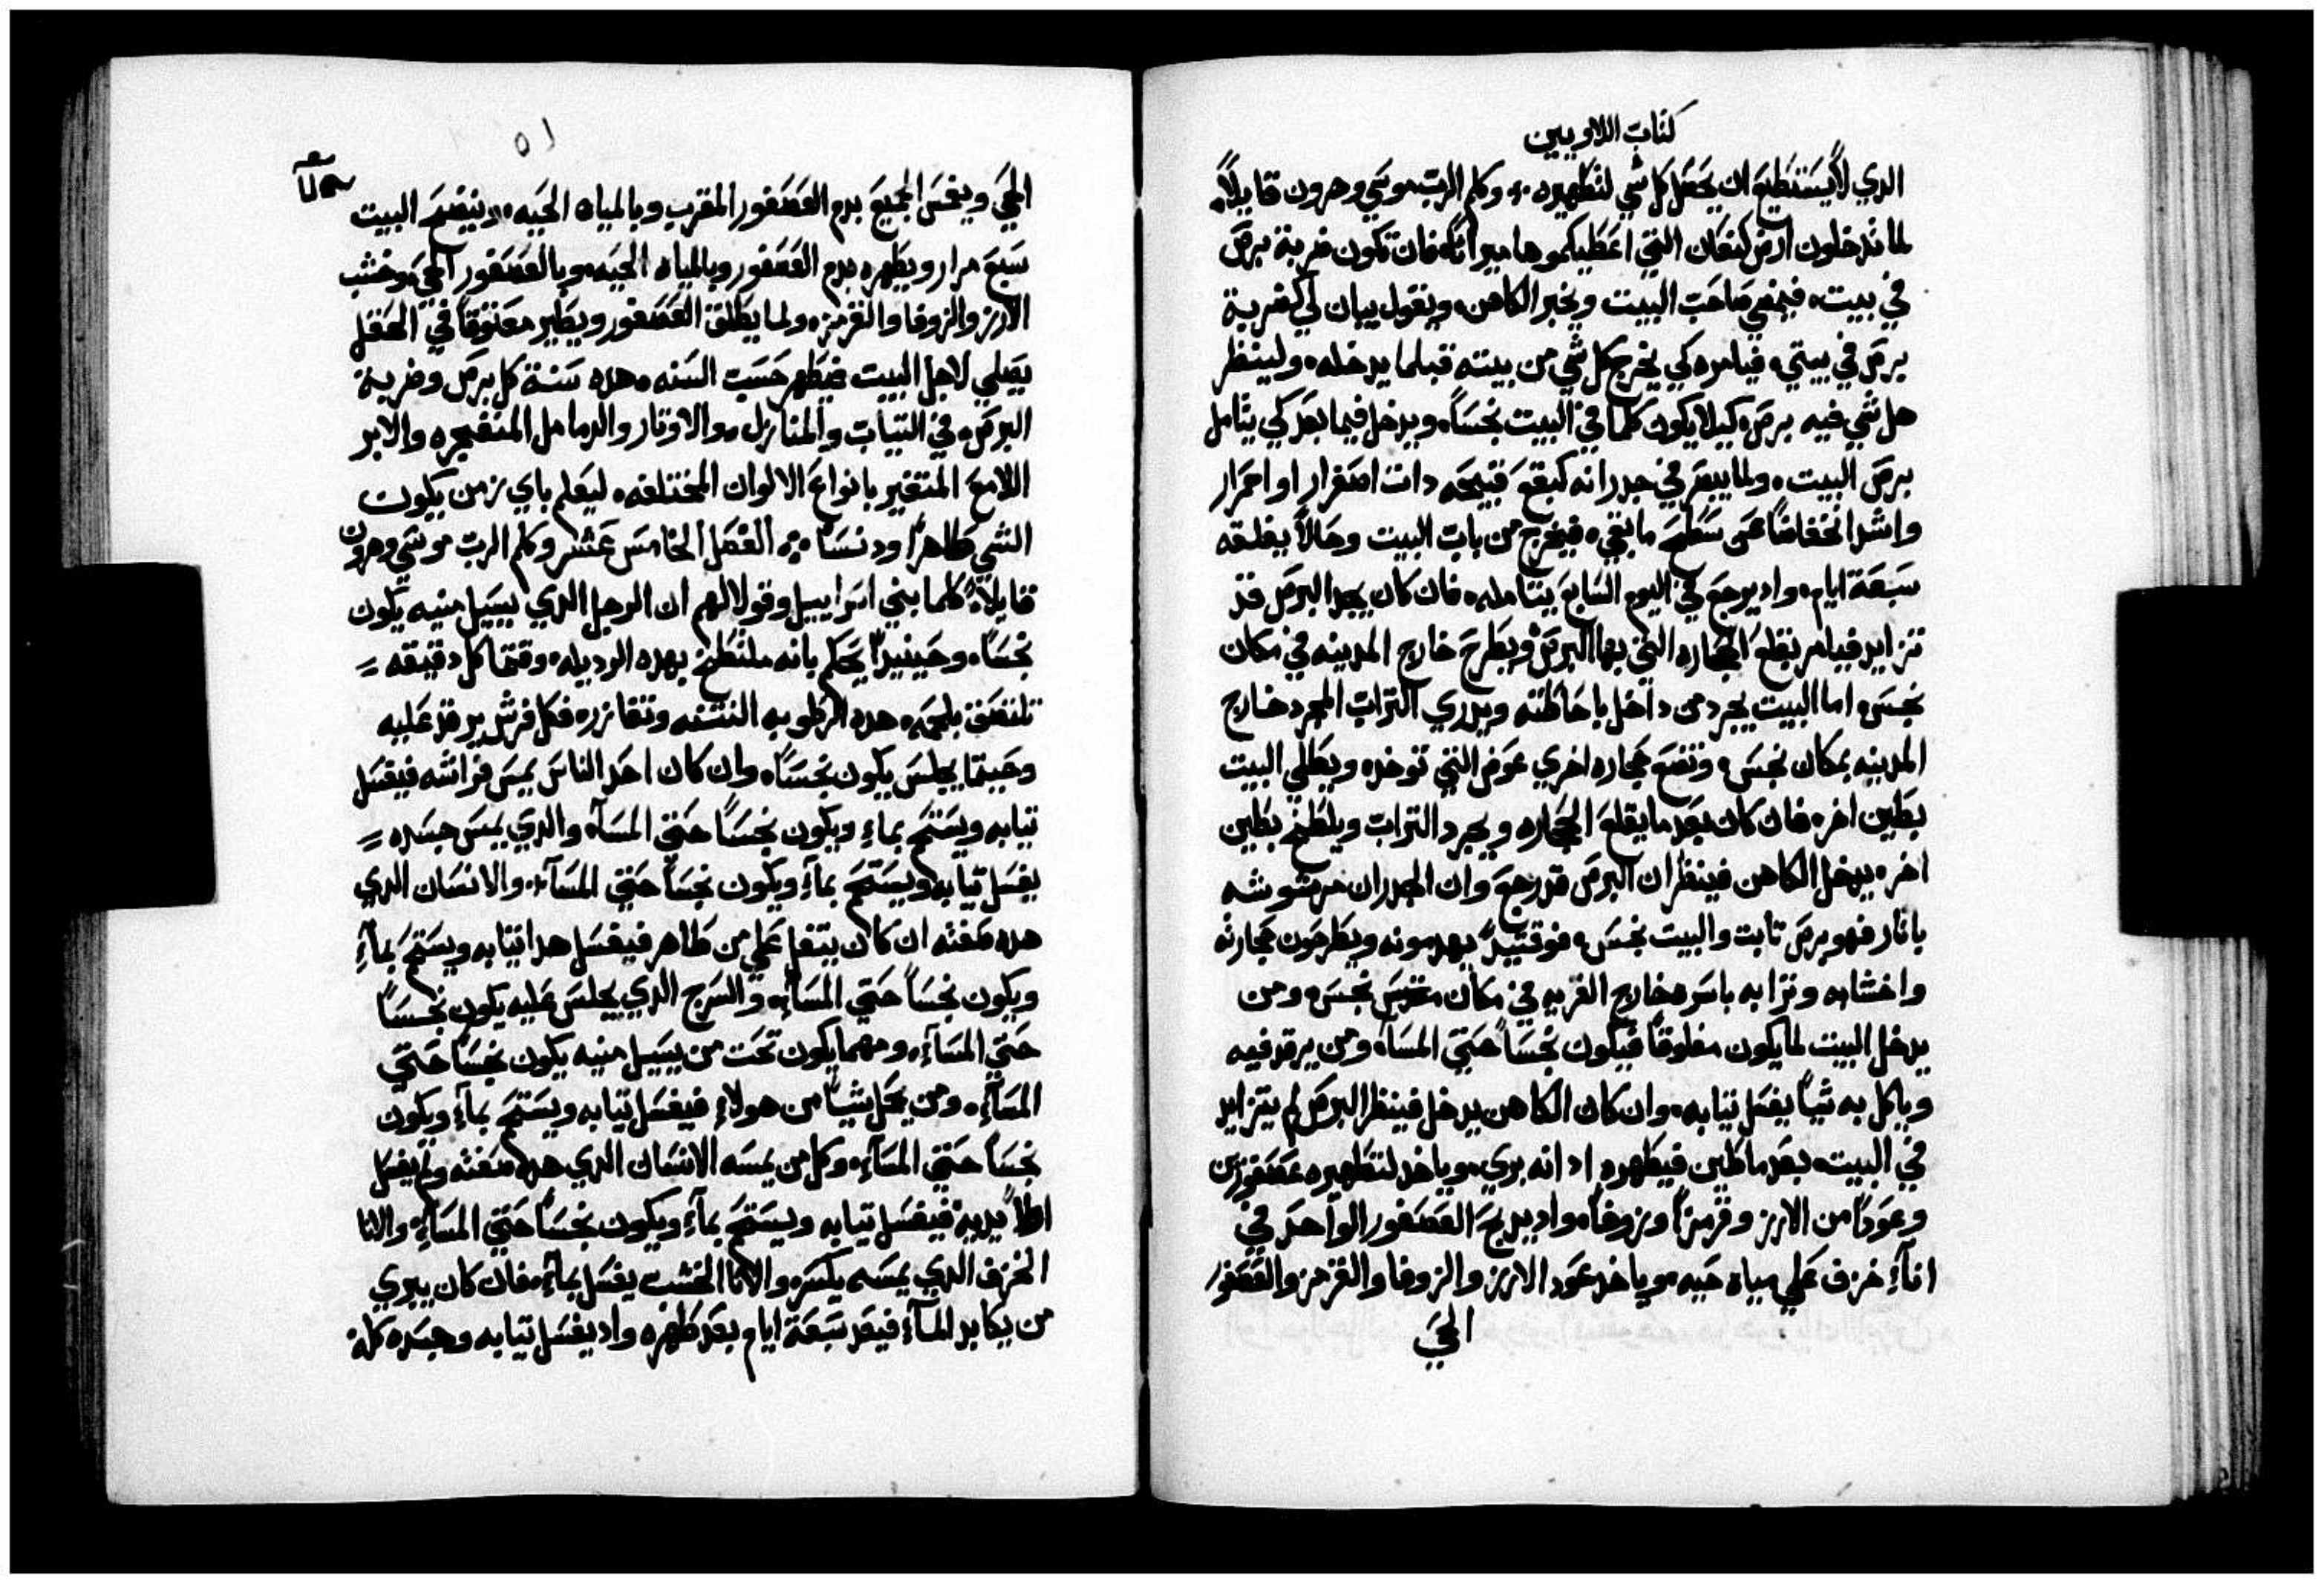 كتاب اللاويين
الدي لا يستطيع ان يحصل كل شي لتطهيره ؞ وكلم الرب موسي وهرون قايلاً
لما تدخلون ارض كنعان التي اعطيكموها ميراثا فان تكون ضربة برص
في بيت، فيمضي صاحب البيت ويخبر الكاهن، ويقول يبان لي كضربة
برص في بيتي، فيامره كي يخرج كل شي من بيته قبلما يدخله، ولينظر
هل شي فيه برص، كيلا يكون كلما في البيت نجساً، ويدخل فيما بعد كي يتامل
برص البيت، ولما يبصر في جدرانه كبقع قبيحه دات اصفرار او احمرار
واشد انخفاضاً عن سطح ما بقي، فيخرج من باب البيت وحالاً يغلقه
سبعة ايام، واد يرجع في اليوم السابع يتامله، فان كان يجد البرص قد
تزايد فيامر بقلع الحجاره التي بها البرص وبطرح خارج المدينه في مكان
نجس، اما البيت يجرد من داخل باحاطته ويدري التراب المجرد خارج
المدينه بمكان نجس، وتضع حجاره اخري عوض التي توخد، ويطلي البيت
بطين اخر، فان كان بعد ما يقلع الحجاره ويجرد التراب ويلطخ بطين
اخر، يدخل الكاهن فينظر ان البرص قد رجع وان الجدران مرشوشه
باثار فهو برص ثابت والبيت نجس، فوقتيدٍ يهدمونه ويطرحون حجارته
واخشابه وترابه باسره خارج القريه في مكان نجس، ومن
يدخل البيت لما يكون مغلوقاً فيكون نجساً حتي المسآ، ومن يرقد فيه
وياكل به شياً يغسل ثيابه، وان كان الكاهن يدخل فينظر البرص لم يتزايد
في البيت، بعد ما طين فيطهره اد انه بري، وياخد لتطهيره عصفورين
وعوداً من الارز وقرمزاً وزوفا، واد يدبح العصفور الواحد في
انآء خزف علي مياه حيه، وياخد عود الارز والزوفا والقرمز والعصفور
الحي
٥١
الحي ويغمس الجميع بدم العصفور المقرب وبالمياه الحيه، وينضح البيت
سبع مرار ويطهره بدم العصفور وبالمياه الحيه، وبالعصفور الحي، وخشب
الارز والزوفا والقرمز، ولما يطلق العصفور ويطير معتوقاً في الحقل
يصلي لاجل البيت فيطهر حسب السنه، هده سنة كل برص وضربة
البرص، في التياب والمنازل، والاوتار والدمامل المنفجره والابر
اللامع المتغير بانواع الالوان المختلفه، ليعلم باي زمن يكون
الشي طاهراً ودنساً ؞ الفصل الخامس عشر وكلم الرب موسي وهرون
قايلاً، كلما بني اسراييل وقولا لهم ان الرجل الدي يسيل منيه يكون
نجساً، وحينيدٍ يحكم بانه ملتطخ بهده الرديله، وقتما كل دقيقه
تلتصق بلحمه هده الرطوبه النتنه وتقازره فكل فرش يرقد عليه
وحيتما يجلس يكون نجساً، وان كان احد الناس يمس فراشه فيغسل
تيابه ويستحم بماءٍ ويكون نجساً حتي المسآ، والدي يمس جسده
يغسل تيابه ويستحم بمآءٍ ويكون نجساً حتي المسآء، والانسان الدي
هده صفته ان كان يتفل علي من طاهر فيغسل هدا تيابه ويستحم بمآءٍ
ويكون نجساً حتي المسآء، والسرج الدي يجلس عليه يكون نجساً
حتي المسآء، ومهما يكون تحت من يسيل منيه يكون نجساً حتي
المسآء، ومن يحمل شياً من هولاءِ فيغسل تيابه ويستحم بمآءٍ ويكون
نجساً حتي المسآء، وكل من يمسه الانسان الدي هده صفته ولم يغسل
اولاً يديه فيغسل تيابه ويستحم بمآءٍ ويكون نجساً حتي المسآء، والانا
الخزف الدي يمسه يكسر، والانا الخشب يغسل بمآءٍ، فان كان يبري
من يكابد المآء فيعد سبعة ايام بعد طهره واد يغسل تيابه وجسده كله